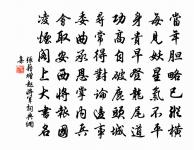 當年膽略已縱橫
每見妖星氣不平
身貴早登龍尾道
功高自破鹿頭城
尋常得對論邊事
委曲承恩掌內兵
會取安西將報國
凌煙閣上大書名
張籍贈趙將軍詞典網